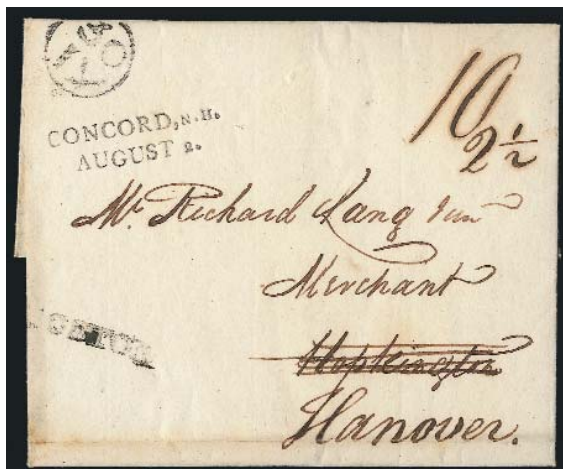 10
2 1/2
CONCORD, N.H.
AUGUST 2.
Mr Richard Lang Jun
Merchant
Hopkington
Hanover.